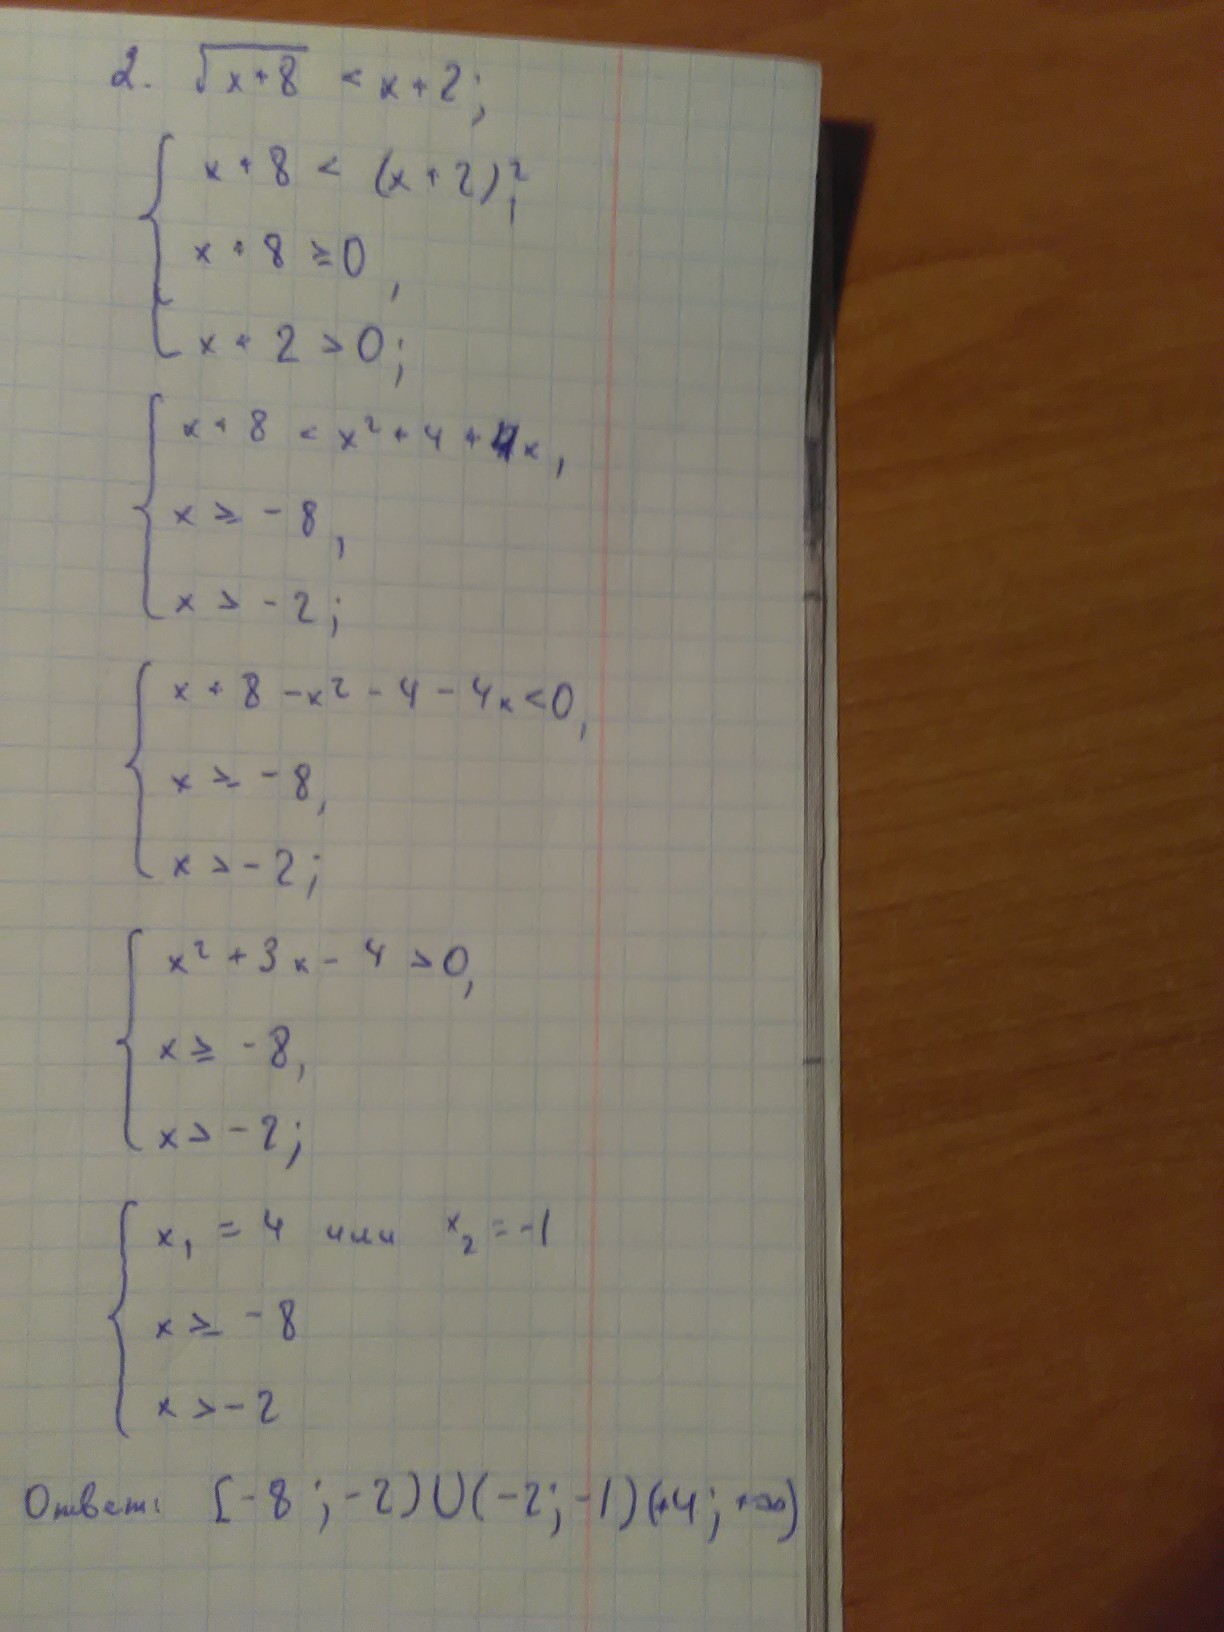 2. √(x+8) < x+2;
{ x+8 < (x+2)²,
x+8 ≥ 0,
x+2 > 0;
{ x+8 < x²+4+4x,
x ≥ -8,
x > -2;
{ x+8-x²-4-4x<0,
x ≥ -8,
x > -2;
{ x²+3x-4 > 0,
x ≥ -8,
x > -2;
{ x₁ = 4 или x₂ = -1
x ≥ -8
x > -2
Ответ: [-8; -2)∪(-2; -1)(+4; +∞)